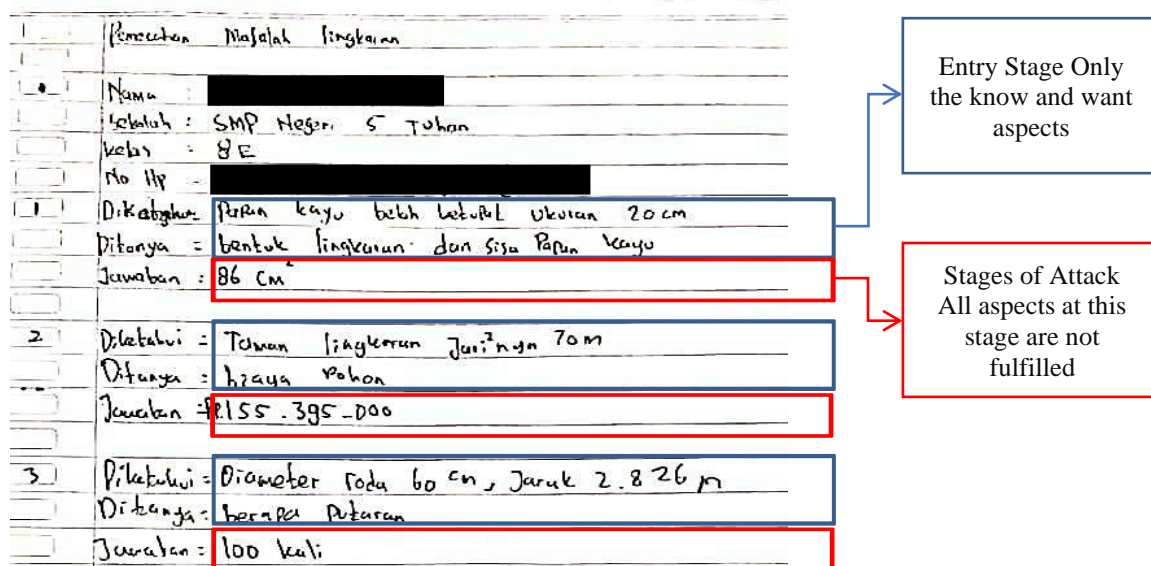 Pemecahan Masalah lingkaran
Nama :
Sekolah : SMP Negeri 5 Tuban
Kelas : 8E
No Hp =
1 Diketahui = Papan kayu ukuran 20 cm
Ditanya = bentuk lingkaran dan sisa Papan kayu
Jawaban : 86 cm²
2 Diketahui = Taman lingkaran Jari²nya 70m
Ditanya = biaya Pohon
Jawaban = 155.395.000
3 Diketahui = Diameter roda 60 cm, Jarak 2.826 m
Ditanya = berapa Putaran
Jawaban = 100 kali
Entry Stage Only
the know and want
aspects
Stages of Attack
All aspects at this
stage are not
fulfilled